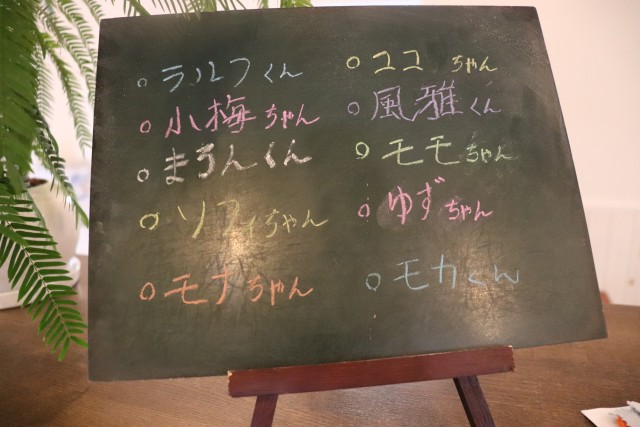 ○ ラルフくん
○ 小梅ちゃん
○ まろんくん
○ ソフィちゃん
○ モナちゃん
○ ココちゃん
○ 風雅くん
○ モモちゃん
○ ゆずちゃん
○ モカくん